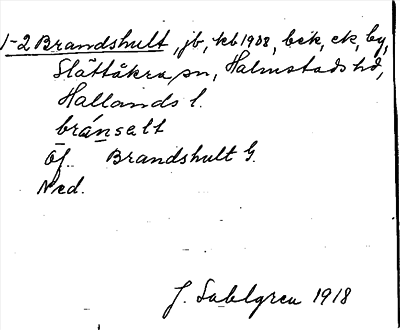 1-2 Brandshult, jb, kb 1908, bck, ck, by,
Slättåkra sn, Halmstads hd,
Hallands l.
bránsalt
Öf. Brandshult G.
Ned.
J. Sahlgren 1918